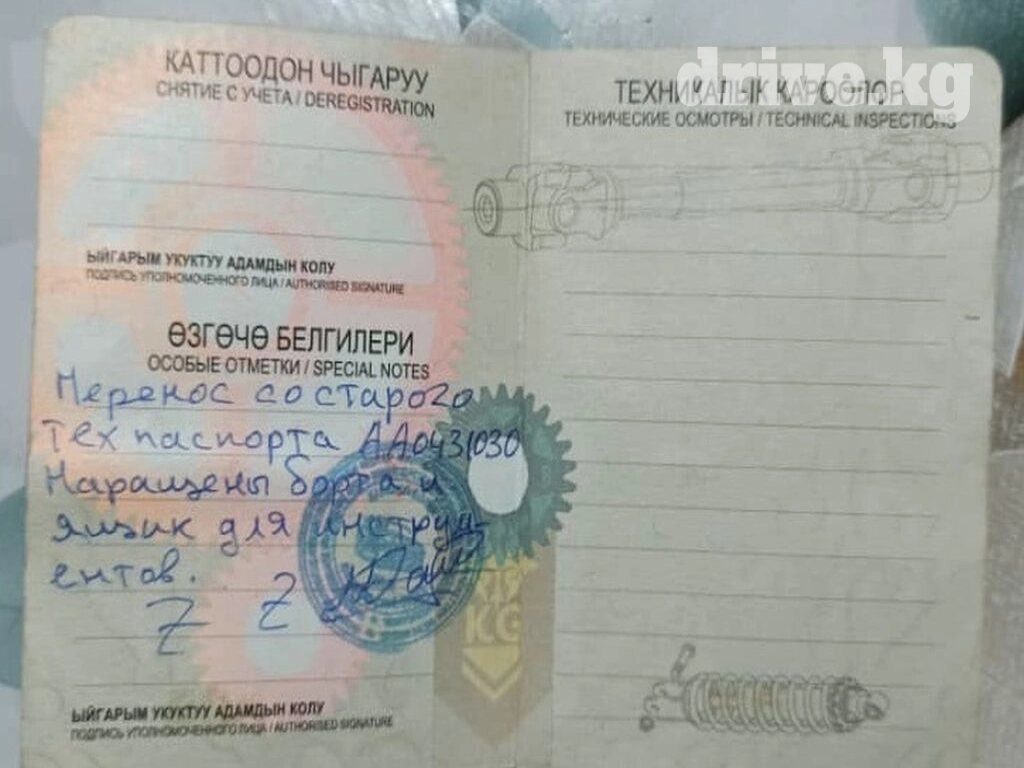 КАТТООДОН ЧЫГАРУУ
СНЯТИЕ С УЧЕТА / DEREGISTRATION
ЫЙГАРЫМ УКУКТУУ АДАМДЫН КОЛУ
ПОДПИСЬ УПОЛНОМОЧЕННОГО ЛИЦА / AUTHORISED SIGNATURE
ӨЗГӨЧӨ БЕЛГИЛЕРИ
ОСОБЫЕ ОТМЕТКИ / SPECIAL NOTES
Перенос со старого
тех паспорта АА0431030
Наращены борта и
ящик для инструм-
ентов.
Z Z
KG
ЫЙГАРЫМ УКУКТУУ АДАМДЫН КОЛУ
ПОДПИСЬ УПОЛНОМОЧЕННОГО ЛИЦА / AUTHORISED SIGNATURE
drive.kg
ТЕХНИКАЛЫК КАРООЛОР
ТЕХНИЧЕСКИЕ ОСМОТРЫ / TECHNICAL INSPECTIONS